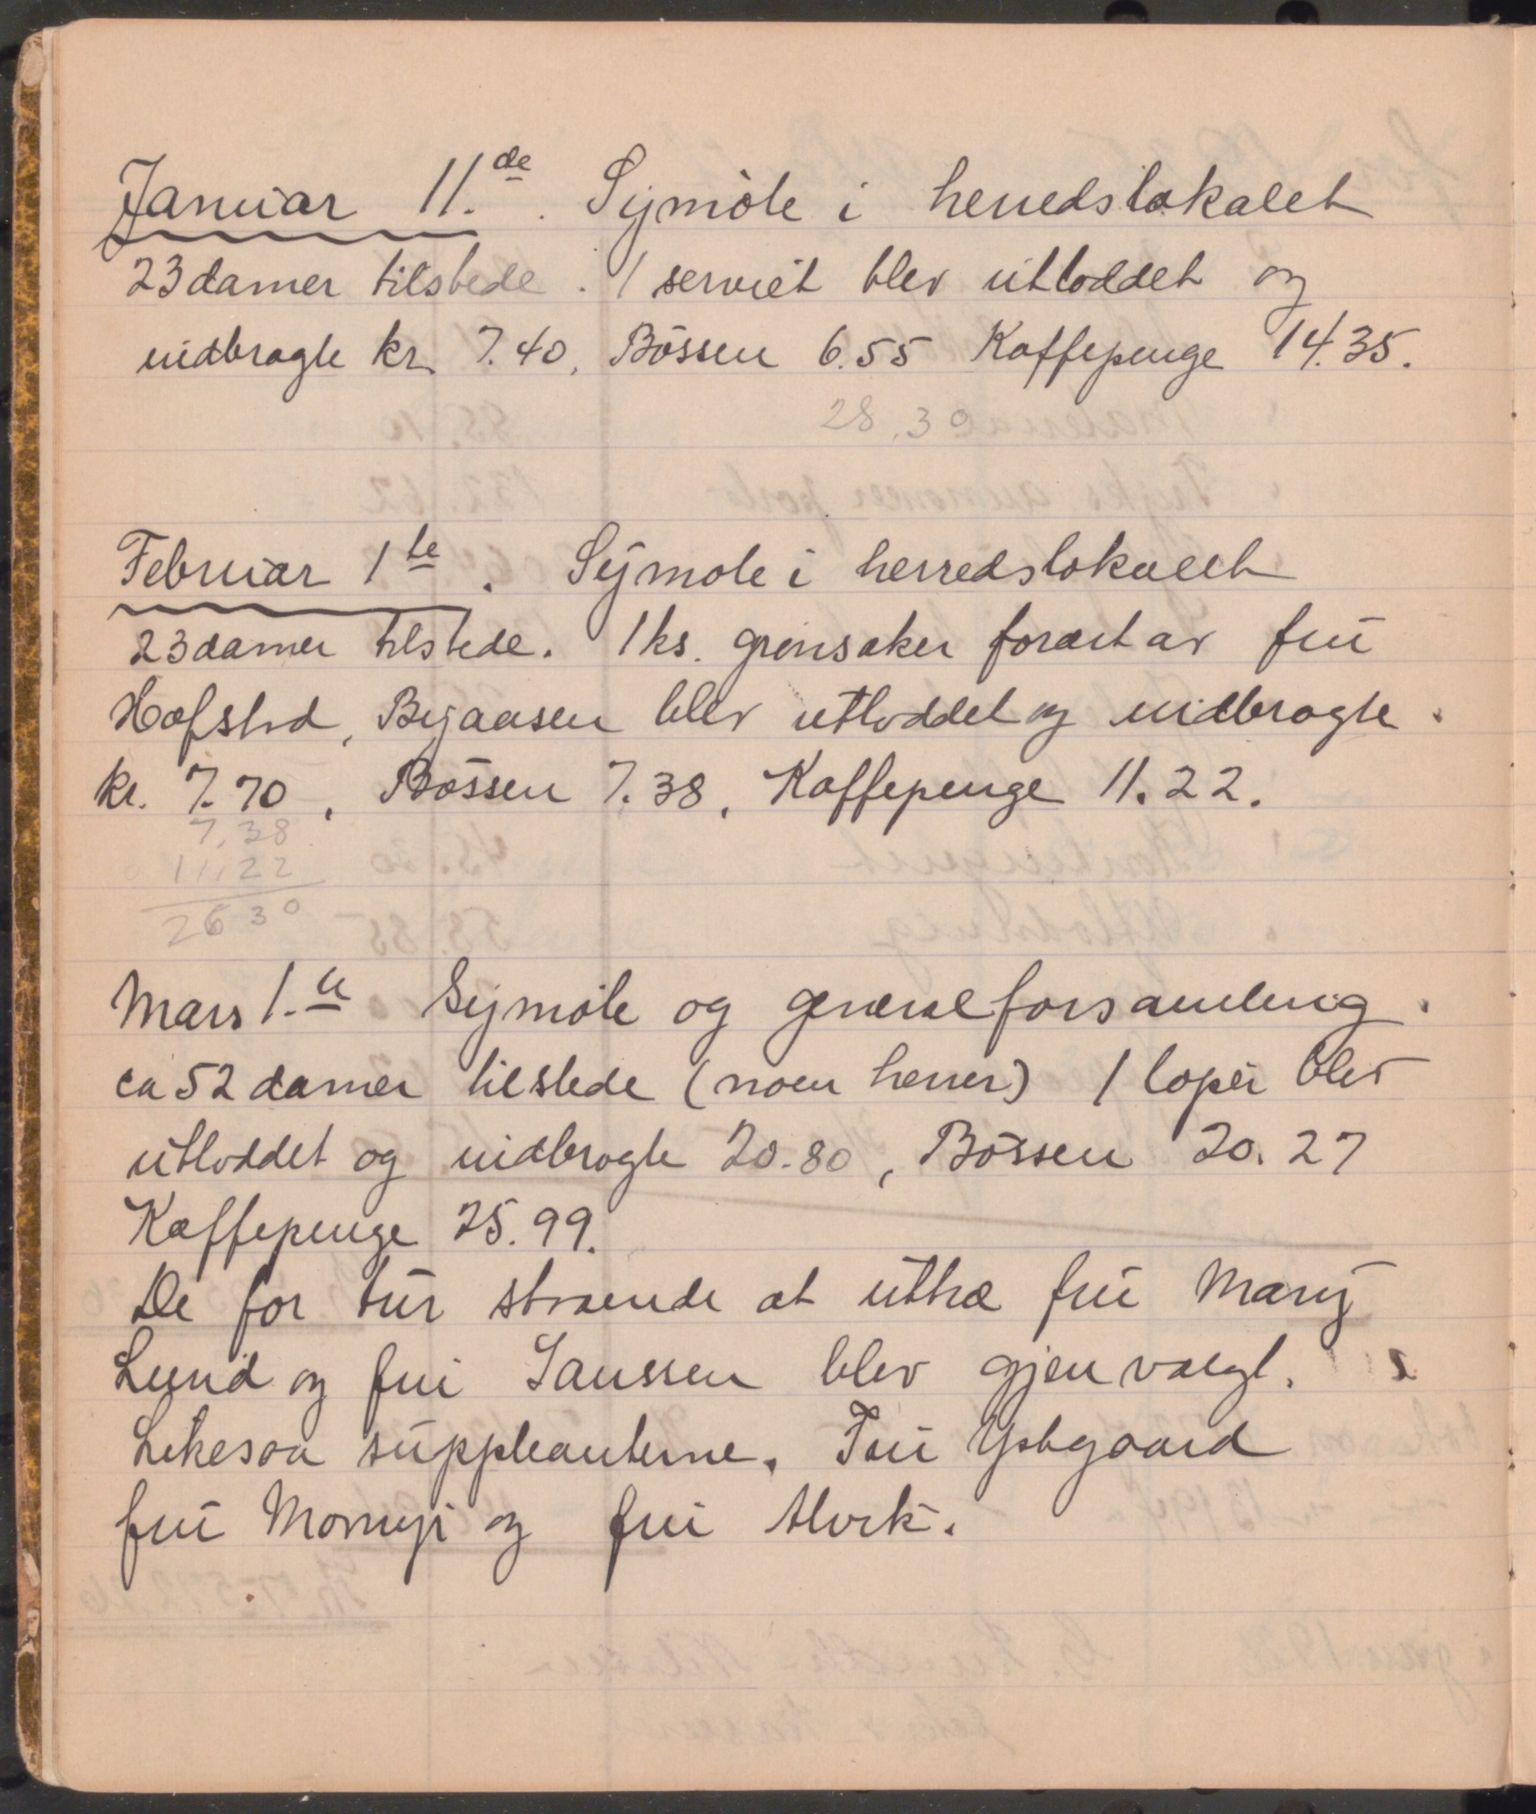 Januar 11.de. Symøte i herredslokalet
23 damer tilstede. 1 serviet blev utloddet og
indbragte kr. 7.40, Bøssen 6.55 Kaffepenge 14.35.
28.30
Februar 1te. Symøte i herredslokalet
23 damer tilstede. 1 ks. grønsaker forært av fru
Hofstad, Byaasen blev utloddet og indbragte.
kr. 7.70, Bøssen 7.38, Kaffepenge 11.22.
7,38
11,22
26 30
Mars 1.te Symøte og generalforsamling.
ca 52 damer tilstede (noen herrer) 1 løper blev
utloddet og indbragte 20.80, Bøssen 20.27
Kaffepenge 25.99.
De for tur staaende at uttræ fru Mary
Lund og fru Sanssen blev gjenvalgt.
Likesaa suppleanterne. Fru Ystgaard
fru Momyr og fru Alvik.